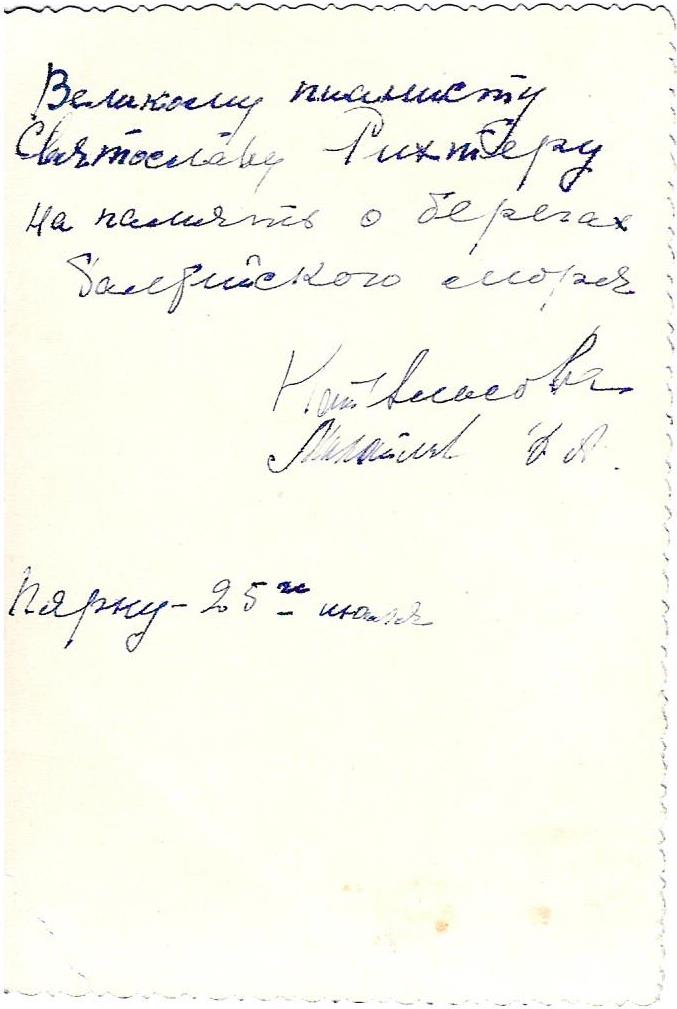 Великому пианисту
Святославу Рихтеру
на память о берегах
балтийского моря
Власова
Пярну - 25 июля